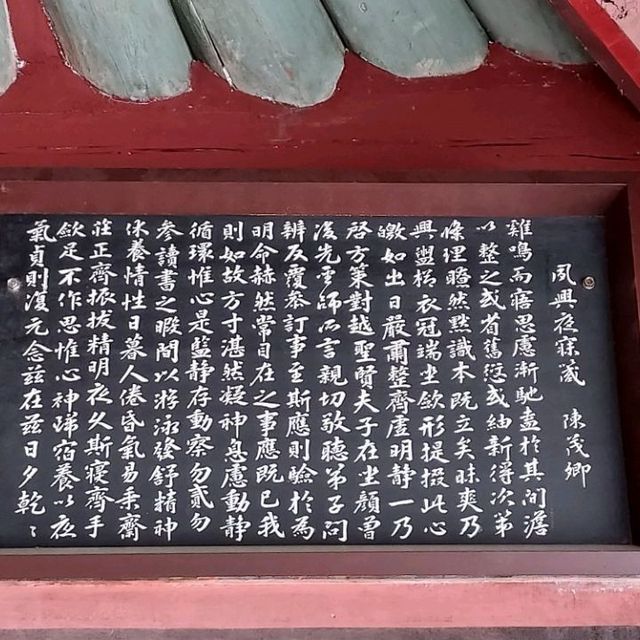 夙興夜寐箴 陳茂卿
雞鳴而寤思慮漸馳盍於其間澹
以整之或省舊愆或紬新得次第
條理瞭然默識本既立矣昧爽乃
興盥櫛衣冠端坐斂形提掇此心
皦如出日嚴肅整齊虛明静一乃
啓方策對越聖賢夫子在坐顏曾
後先聖師所言親切敬聽弟子問
辨反覆參訂事至斯應則驗於為
明命赫然常目在之事應既已我
則如故方寸湛然凝神息慮動静
循環惟心是監静存動察勿貳勿
參讀書之暇間以游泳發舒精神
休養情性日暮人倦昏氣易乘齋
莊正齊振拔精明夜久斯寢齊手
斂足不作思惟心神歸宿養以夜
氣貞則復元念茲在茲日夕乾〻